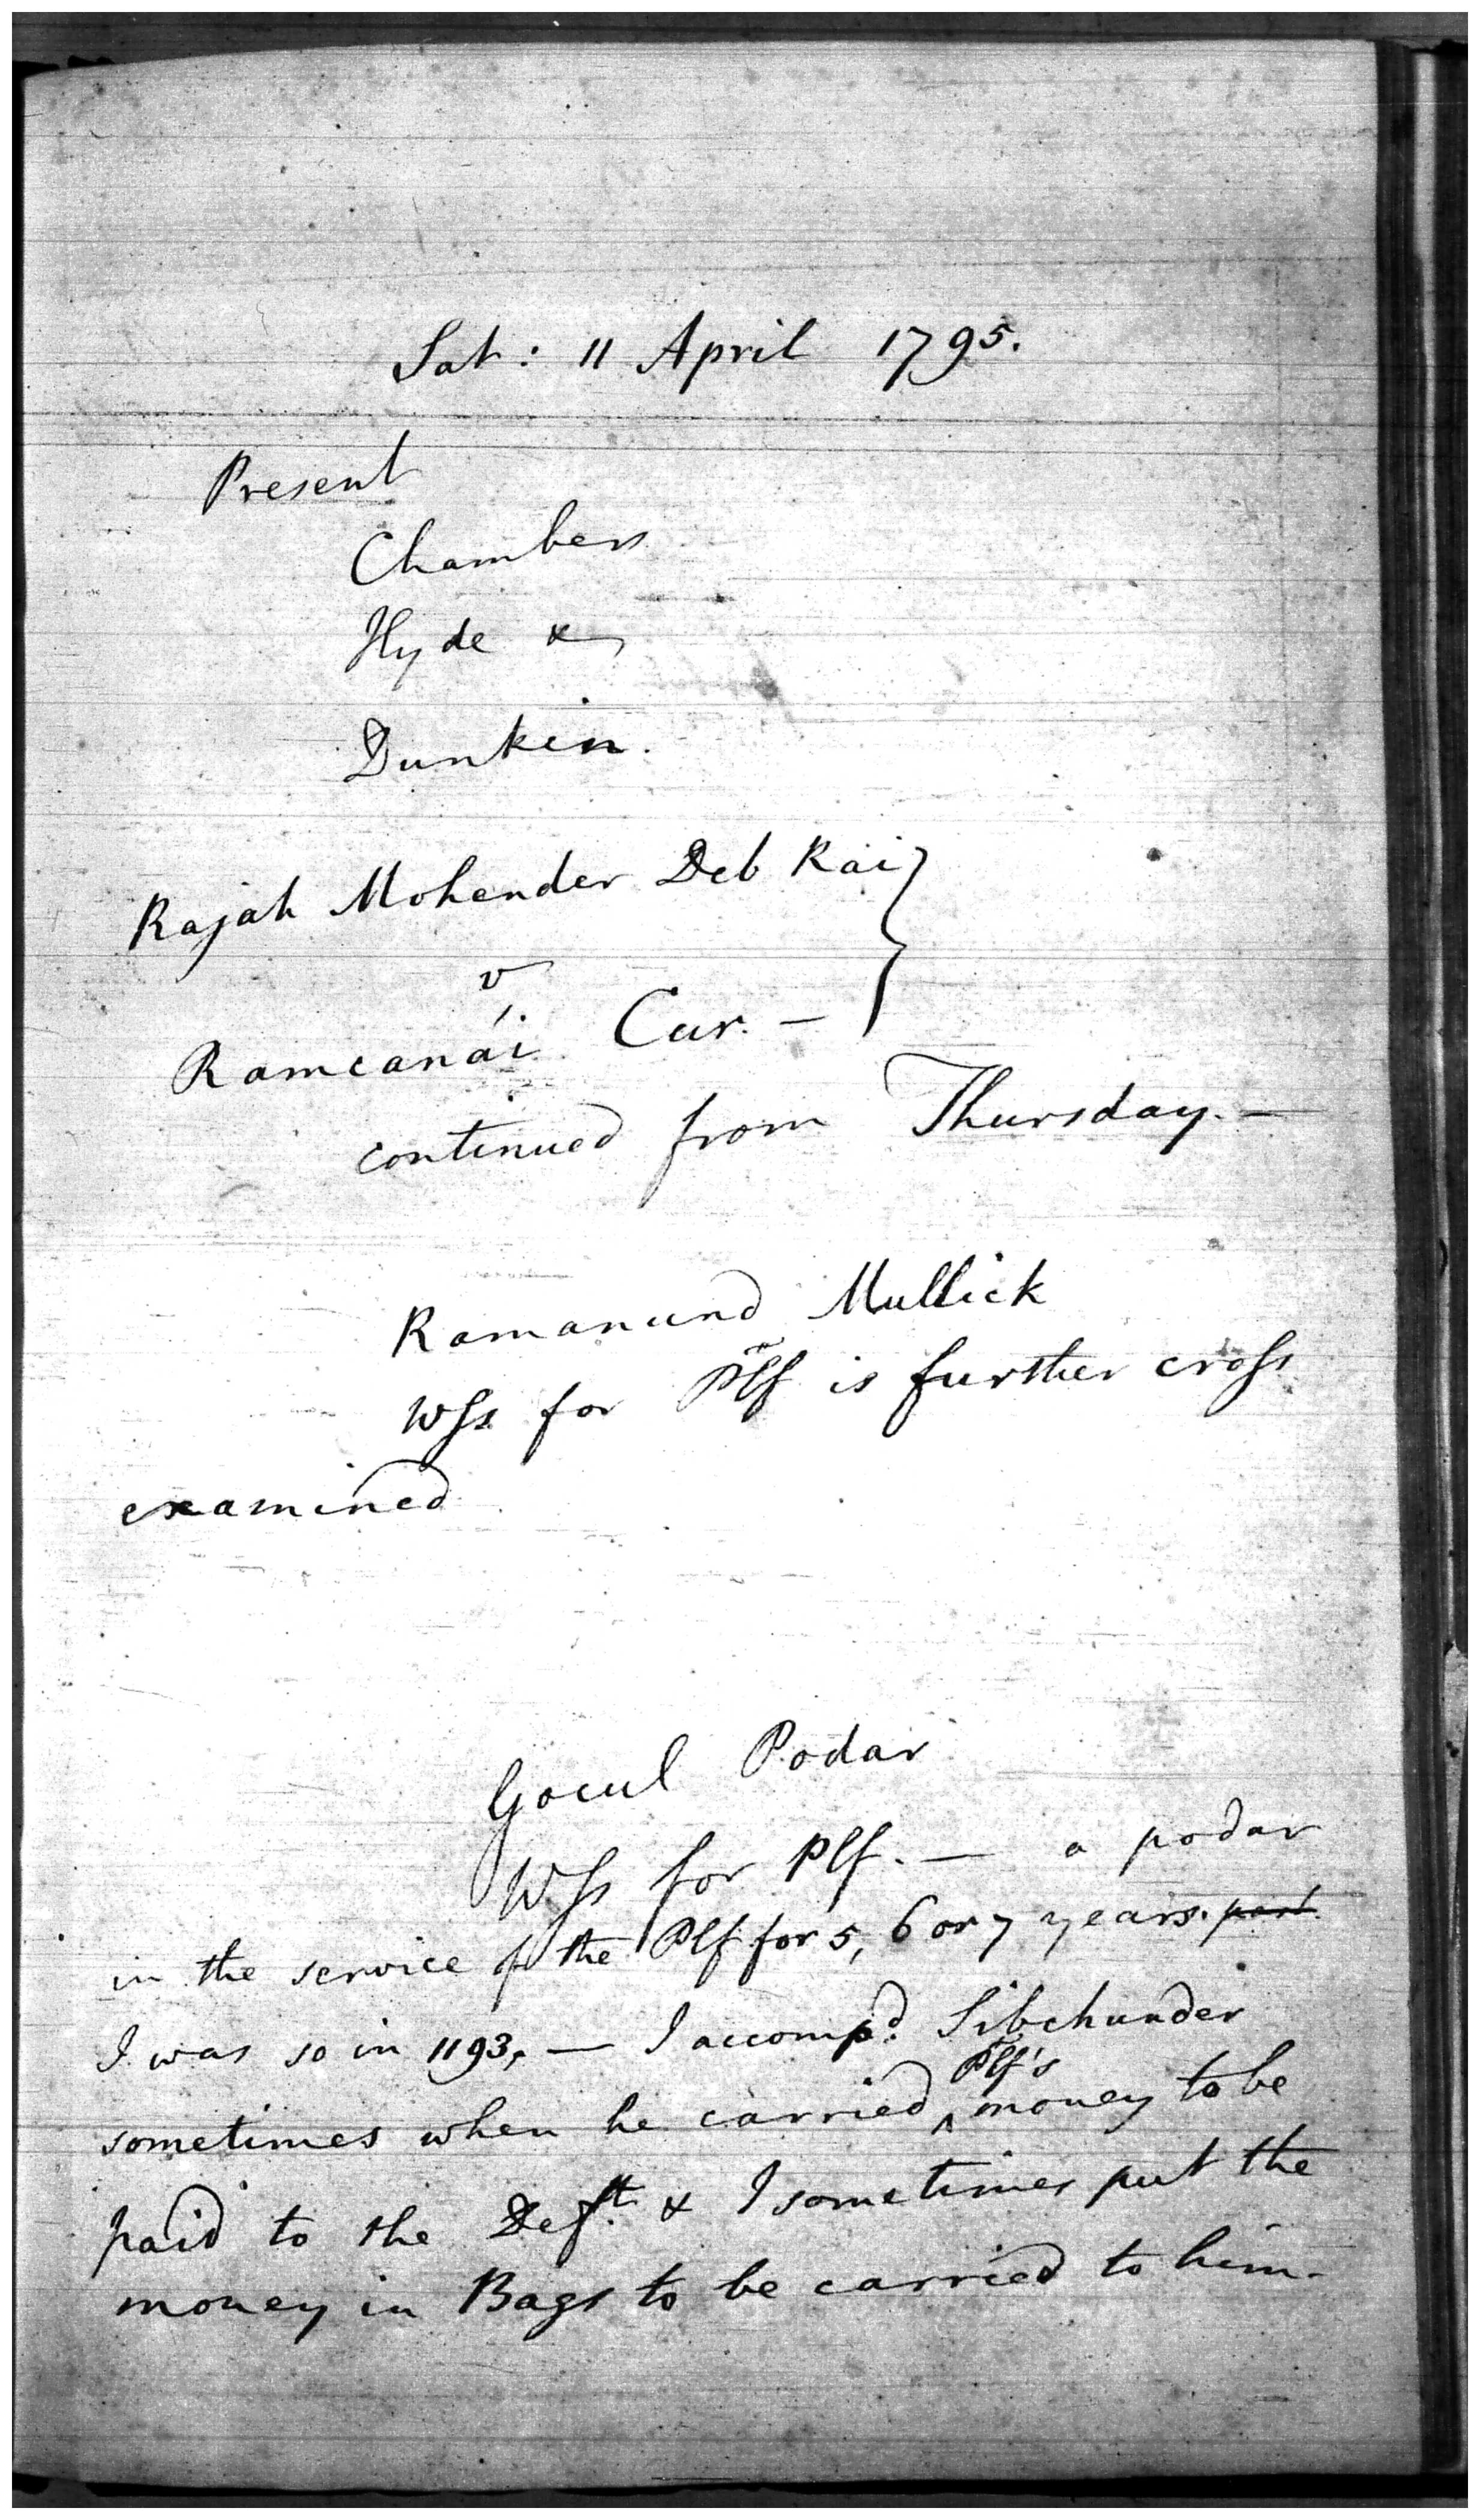 Sat: 11 April 1795.
Present
Chambers
Hyde &
Dunkin.
Rajah Mohender Deb Rai }
v
Ramcanái Cur. —
continued from Thursday. —
Ramanund Mullick
Wſs. for Plf is further croſs
examined
Gocul Podar
Wſs for Plf. — a podar
in the service of the Plf for 5, 6 or 7 years. ~~past~~.
I was so in 1193. — I accompd. Sibchunder
sometimes when he carried ^ Plf's money to be
paid to the Deft. & I sometimes put the
money in Bags to be carried to him.